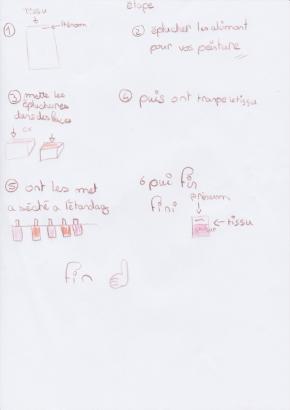 étape
tissu
① prénom
② éplucher les aliment
pour vos peinture
③ mette les
épluchures
dans des bacs
④ puis ont trampe le tissu
⑤ ont les met
a séché a l'étandag
6 pui fin
fini
prénom
tissu
fin